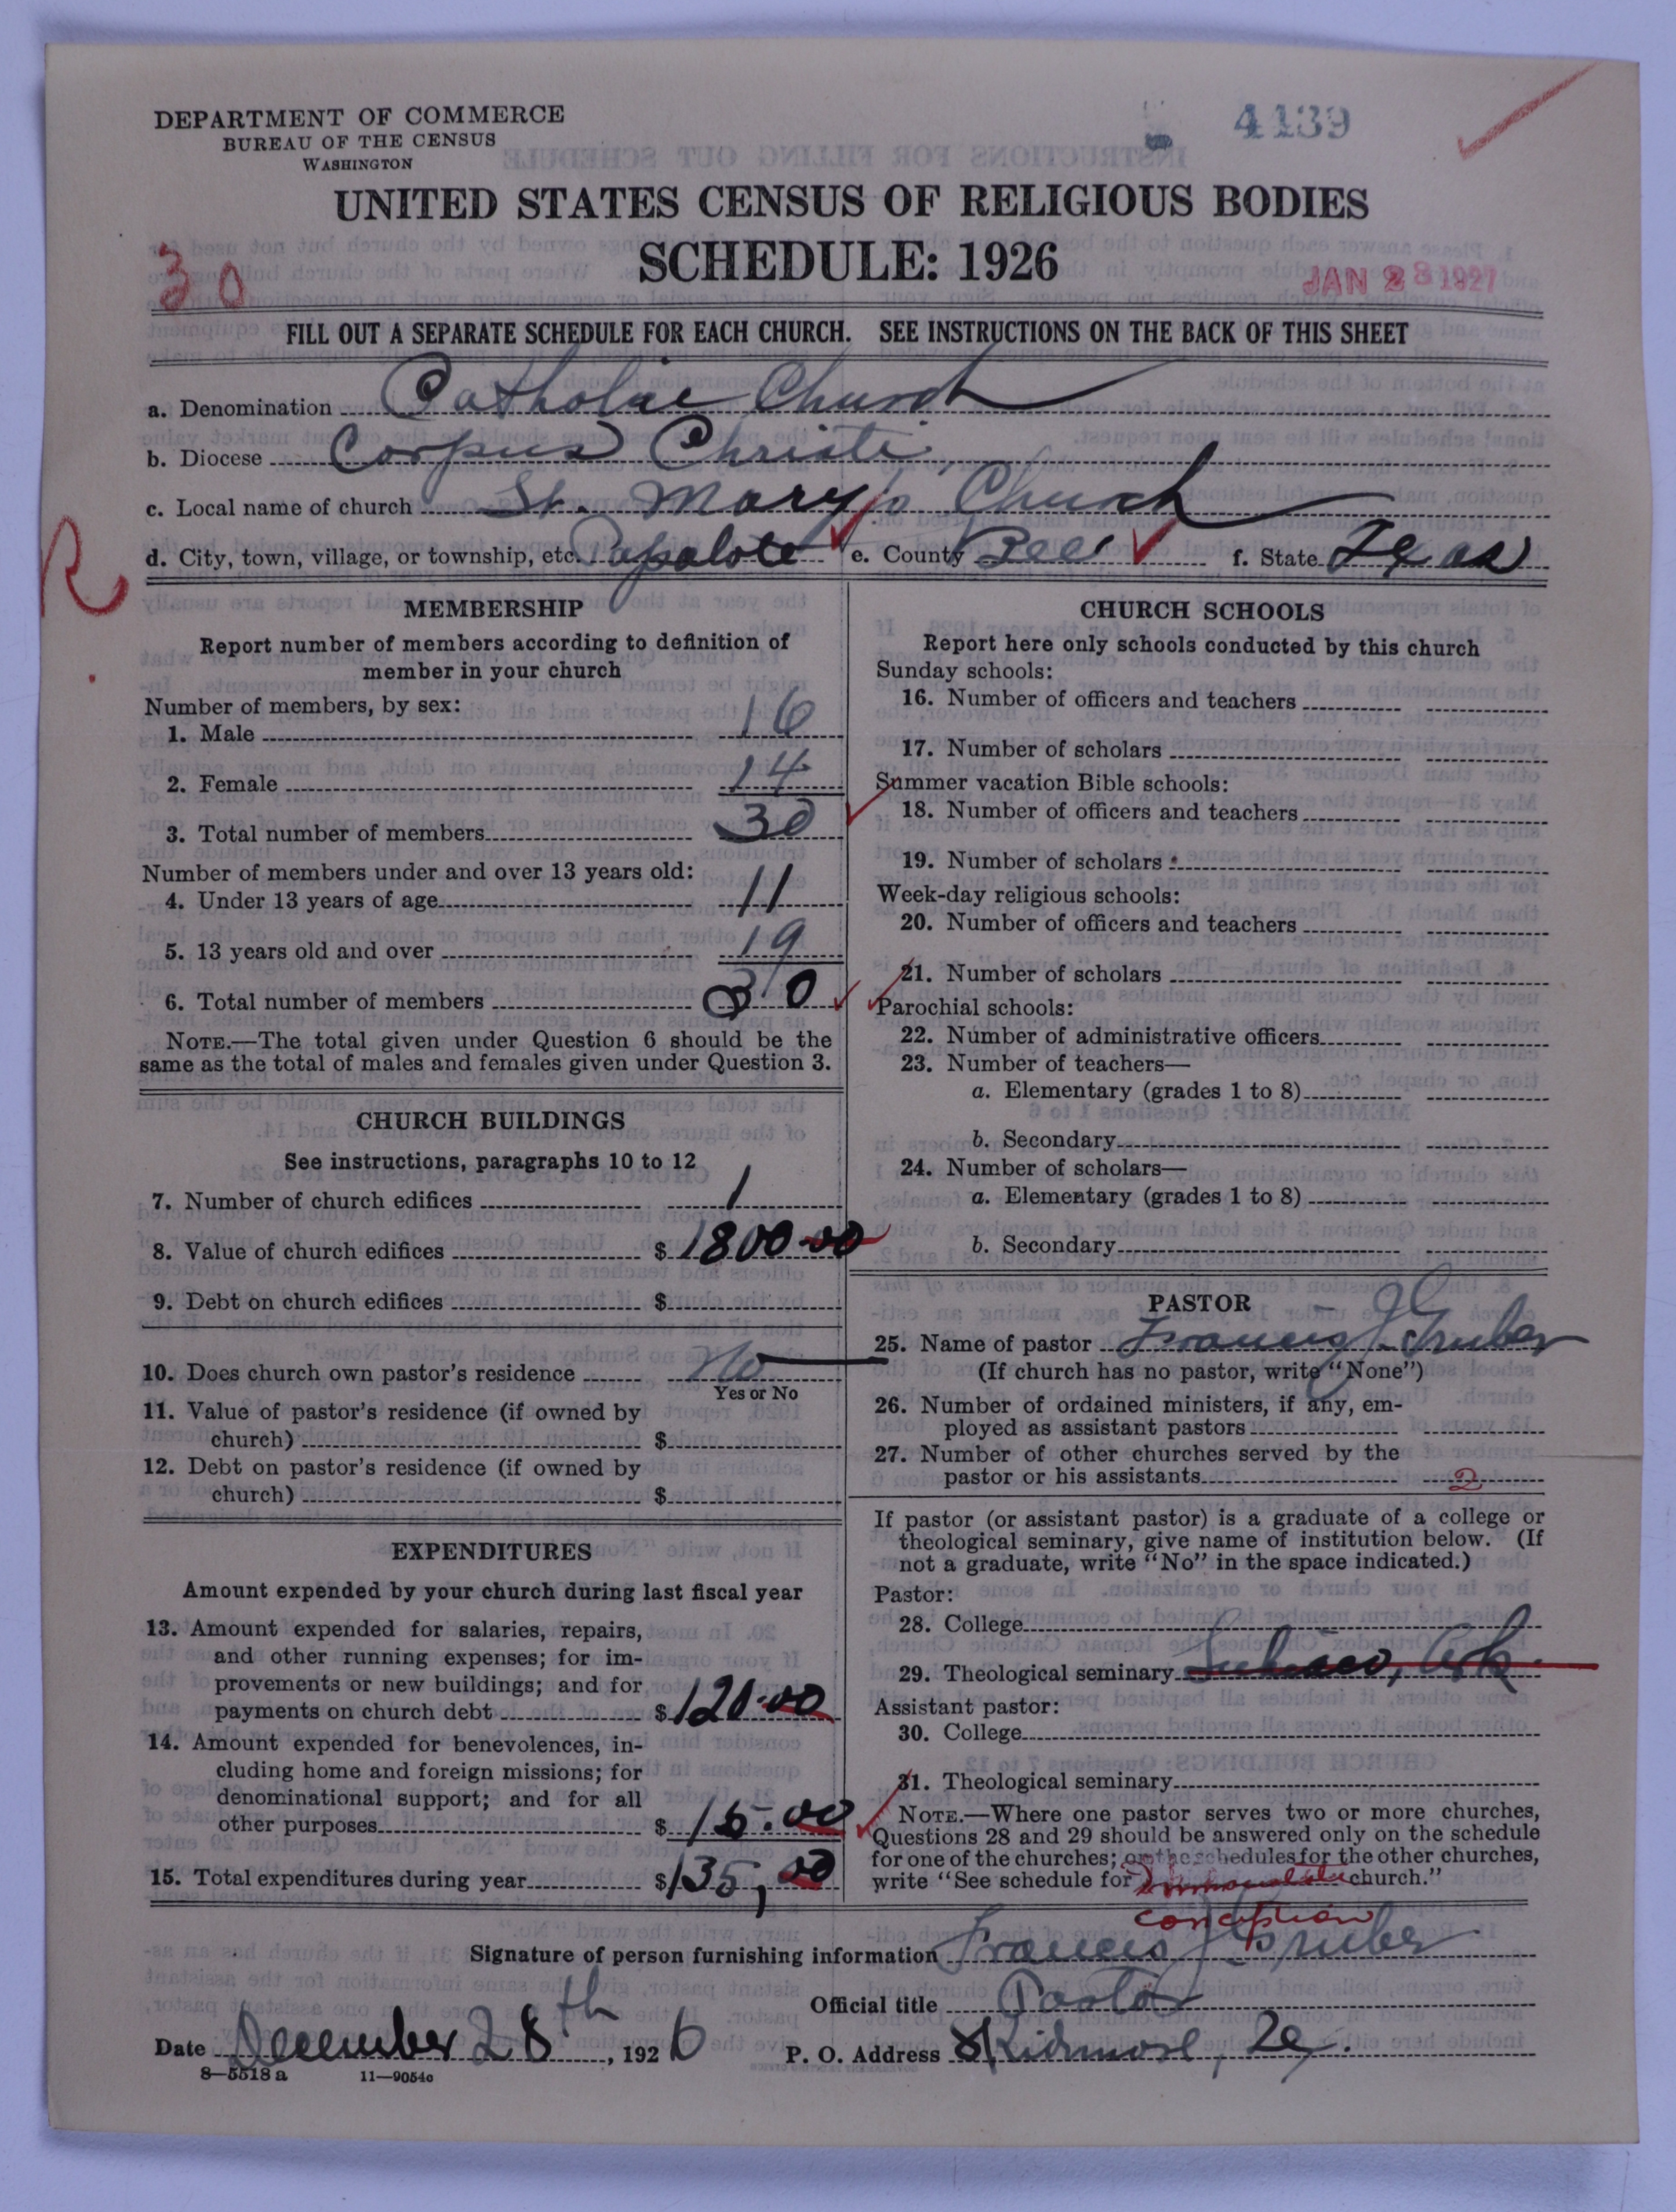 DEPARTMENT OF COMMERCE
BUREAU OF THE CENSUS
WASHINGTON
4139
UNITED STATES CENSUS OF RELIGIOUS BODIES
SCHEDULE: 1926
30
JAN 28 1927
FILL OUT A SEPARATE SCHEDULE FOR EACH CHURCH. SEE INSTRUCTIONS ON THE BACK OF THIS SHEET
a. Denomination Catholic Church
b. Diocese Corpus Christi
c. Local name of church St. Mary's Church
d. City, town, village, or township, etc. Papalote e. County Bee f. State Texas
R
MEMBERSHIP
Report number of members according to definition of
member in your church
Number of members, by sex:
1. Male 16
2. Female 14
3. Total number of members 30
Number of members under and over 13 years old:
4. Under 13 years of age 11
5. 13 years old and over 19
6. Total number of members 30
NOTE.—The total given under Question 6 should be the
same as the total of males and females given under Question 3.
CHURCH BUILDINGS
See instructions, paragraphs 10 to 12
7. Number of church edifices 1
8. Value of church edifices $1800.00
9. Debt on church edifices $
10. Does church own pastor's residence No
Yes or No
11. Value of pastor's residence (if owned by
church) $
12. Debt on pastor's residence (if owned by
church) $
EXPENDITURES
Amount expended by your church during last fiscal year
13. Amount expended for salaries, repairs,
and other running expenses; for im-
provements or new buildings; and for
payments on church debt $120.00
14. Amount expended for benevolences, in-
cluding home and foreign missions; for
denominational support; and for all
other purposes $15.00
15. Total expenditures during year $135,00
CHURCH SCHOOLS
Report here only schools conducted by this church
Sunday schools:
16. Number of officers and teachers
17. Number of scholars
Summer vacation Bible schools:
18. Number of officers and teachers
19. Number of scholars
Week-day religious schools:
20. Number of officers and teachers
21. Number of scholars
Parochial schools:
22. Number of administrative officers
23. Number of teachers—
a. Elementary (grades 1 to 8)
b. Secondary
24. Number of scholars—
a. Elementary (grades 1 to 8)
b. Secondary
PASTOR
25. Name of pastor Francis J. Gruber
(If church has no pastor, write "None")
26. Number of ordained ministers, if any, em-
ployed as assistant pastors
27. Number of other churches served by the
pastor or his assistants 2
If pastor (or assistant pastor) is a graduate of a college or
theological seminary, give name of institution below. (If
not a graduate, write "No" in the space indicated.)
Pastor:
28. College
29. Theological seminary Subiaco, Ark.
Assistant pastor:
30. College
31. Theological seminary
NOTE.—Where one pastor serves two or more churches,
Questions 28 and 29 should be answered only on the schedule
for one of the churches; on the schedules for the other churches,
write "See schedule for Immaculate church."
conception
Signature of person furnishing information Francis J. Gruber
Official title Pastor
Date December 28th, 1926 P. O. Address Skidmore, Tex.
8—5518a 11—9054c